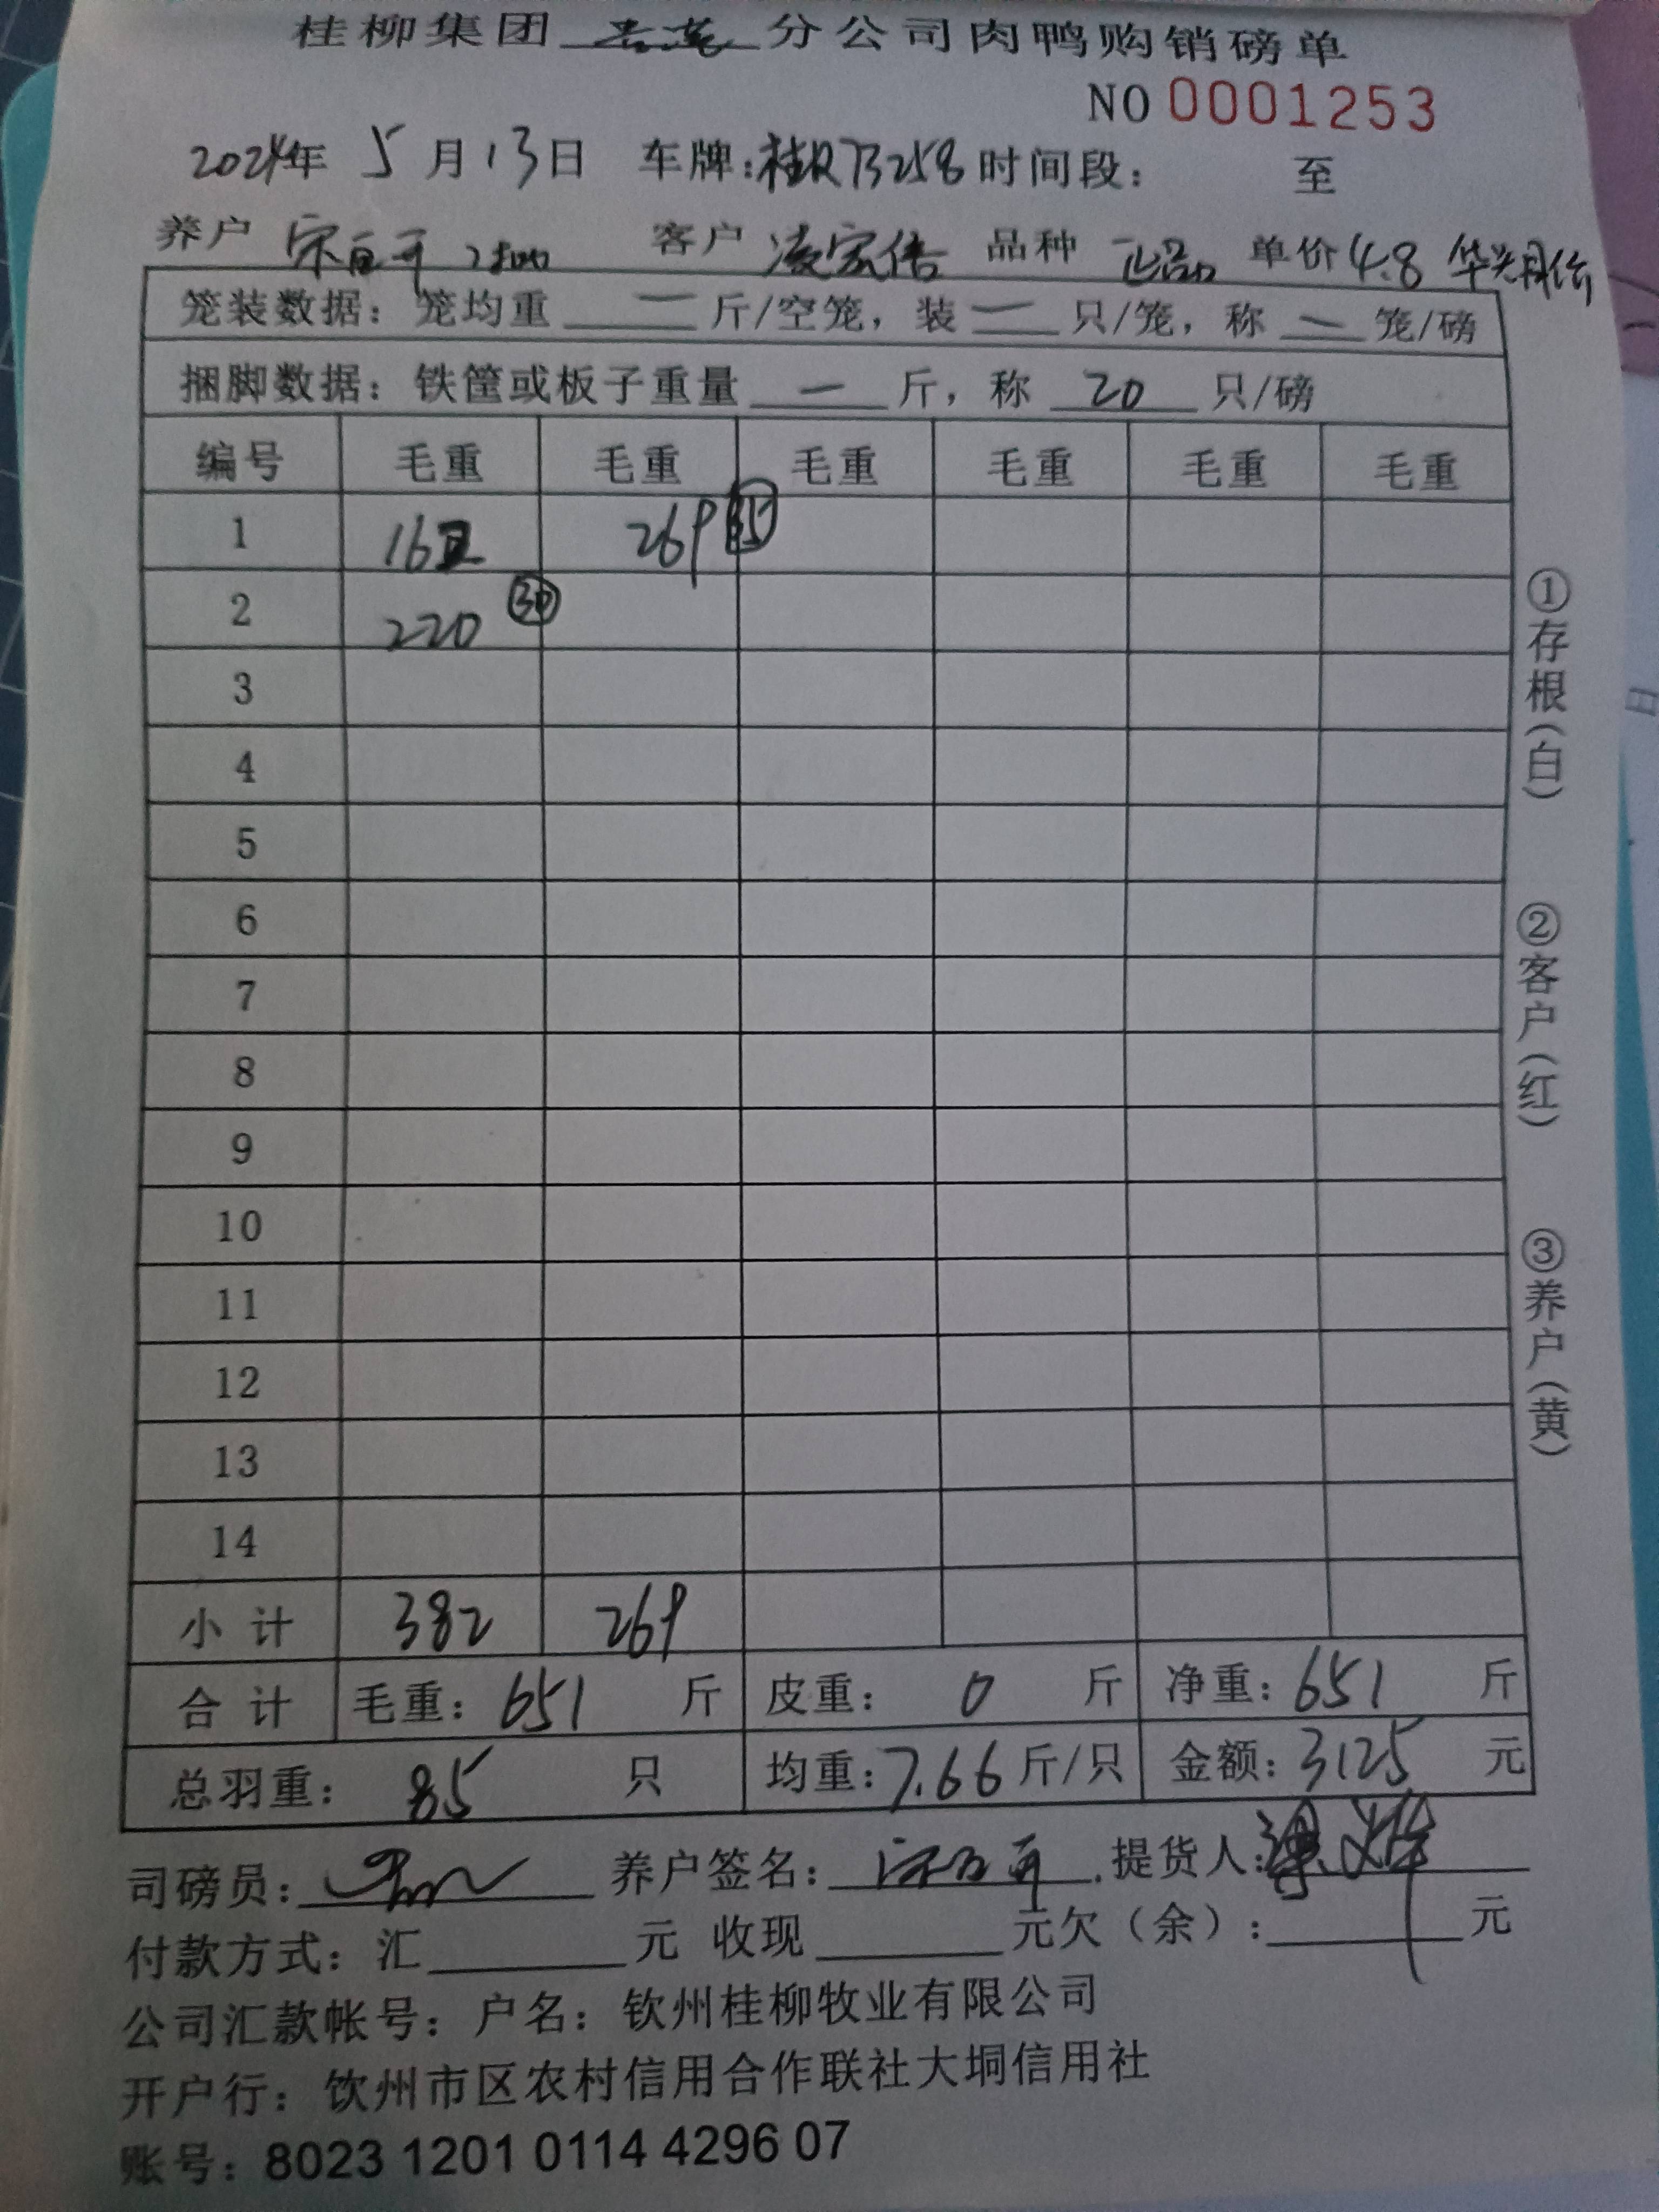 桂柳集团 分公司肉鸭购销磅单
NO 0001253
2024年 5 月 13日 车牌:桂R73258 时间段: 至
养户 客户 凌宏倍 品种 正品 单价 4.8
笼装数据: 笼均重 一 斤/空笼, 装 一 只/笼, 称 一 笼/磅
捆脚数据: 铁筐或板子重量 一 斤, 称 20 只/磅
编号 毛重 毛重 毛重 毛重 毛重 毛重
1 162 269 35
2 220 30
3
4
5
6
7
8
9
10
11
12
13
14
小计 382 269
合计 毛重: 651 斤 皮重: 0 斤 净重: 651 斤
总羽重: 85 只 均重: 7.66 斤/只 金额: 3125 元
司磅员: 养户签名: 提货人:
付款方式: 汇 元 收现 元欠(余): 元
公司汇款帐号: 户名: 钦州桂柳牧业有限公司
开户行: 钦州市区农村信用合作联社大垌信用社
账号: 8023 1201 0114 4296 07
①存根(白)
②客户(红)
③养户(黄)